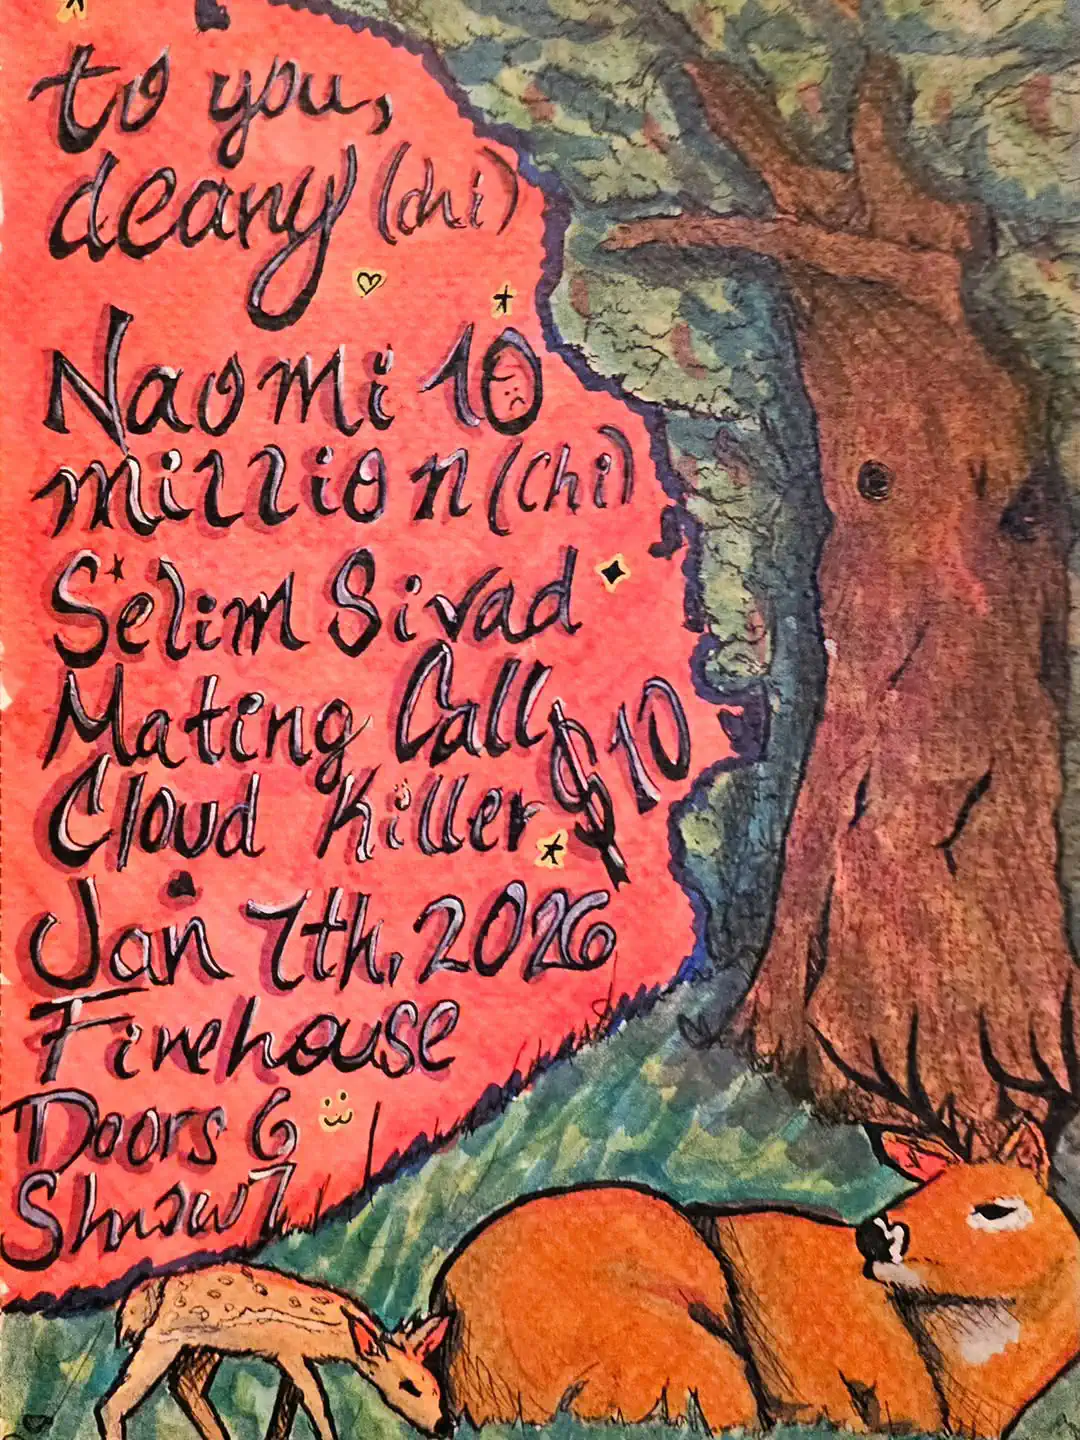 to you,
deany (chi)
Naomi 10
million (chi)
Selim Sivad
Mating Call
Cloud Killer $10
Jan 7th, 2026
Firehouse
Doors 6
Show 7